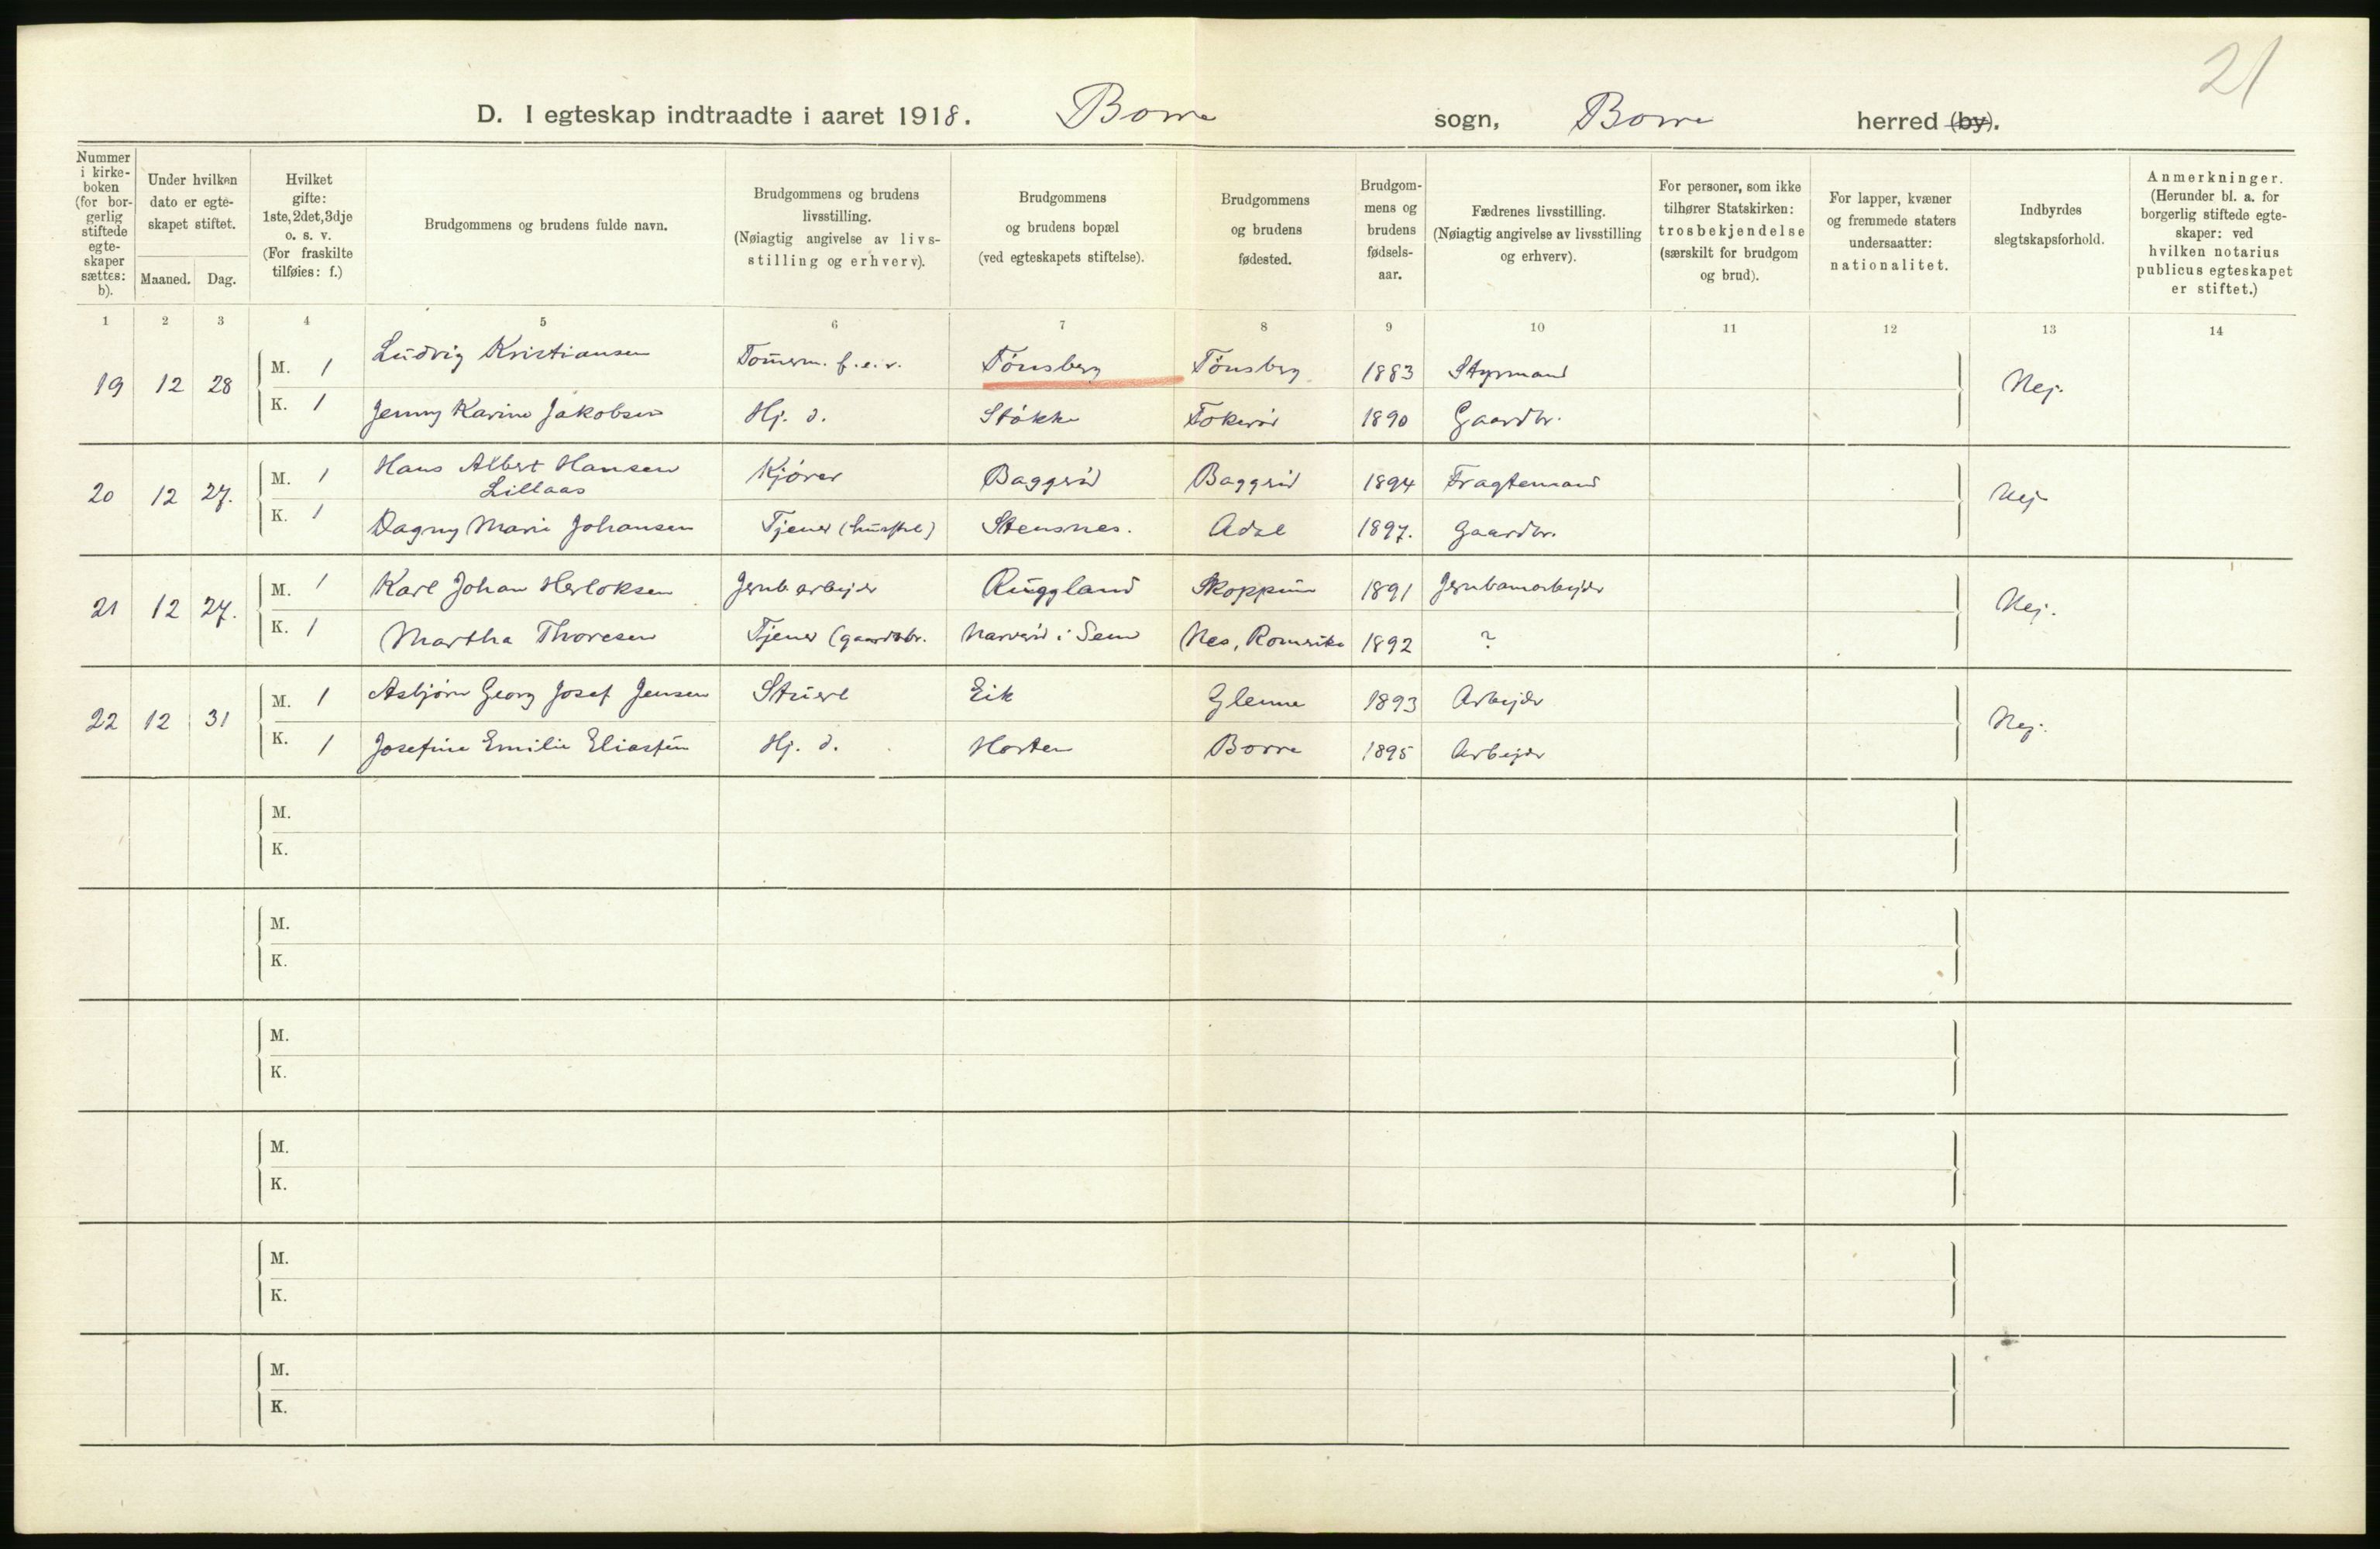 21
D. I egteskap indtraadte i aaret 1918. Borre sogn, Borre herred (by).
Nummer i kirke-boken (for bor-gerlig stiftede egte-skaper sættes: b).
Under hvilken dato er egte-skapet stiftet.
Maaned. Dag.
Hvilket gifte: 1ste, 2det, 3dje o. s. v. (For fraskilte tilføies: f.)
Brudgommens og brudens fulde navn.
Brudgommens og brudens livsstilling. (Nøiagtig angivelse av livs-stilling og erhverv).
Brudgommens og brudens bopæl (ved egteskapets stiftelse).
Brudgommens og brudens fødested.
Brudgom-mens og brudens fødsels-aar.
Fædrenes livsstilling. (Nøiagtig angivelse av livsstilling og erhverv).
For personer, som ikke tilhører Statskirken: trosbekjendelse (særskilt for brudgom og brud).
For lapper, kvæner og fremmede staters undersaatter: nationalitet.
Indbyrdes slegtskapsforhold.
Anmerkninger. (Herunder bl. a. for borgerlig stiftede egte-skaper: ved hvilken notarius publicus egteskapet er stiftet.)
1 2 3 4 5 6 7 8 9 10 11 12 13 14
19 12 28 M. 1 Ludvig Kristiansen Tömerm. f.e.r. Tönsberg Tönsberg 1883 Styrmand Nej.
K. 1 Jenny Karine Jakobsen Hj. d. Stokke Fokerød 1890 Gaardbr.
20 12 27. M. 1 Hans Albert Hansen Lillaas Kjörer Baggerød Baggerød 1894 Fragtemand Nej
K. 1 Dagny Marie Johansen Tjener (husstel) Stensnes. Adal 1897. Gaardbr.
21 12 27. M. 1 Karl Johan Herloksen Jernb arbejder Ruggland Skoppum 1891 Jernbanarbejder Nej.
K. 1 Martha Thoresen Tjener (gaardsbr. i Sem Nes, Romerike 1892 ?
22 12 31 M. 1 Asbjörn Georg Josef Jensen Stuert Eik Glenne 1893 Arbejder Nej.
K. 1 Josefine Emilie Eliassen Hj. d. Horten Borre 1895 Arbejder
M.
K.
M.
K.
M.
K.
M.
K.
M.
K.
M.
K.